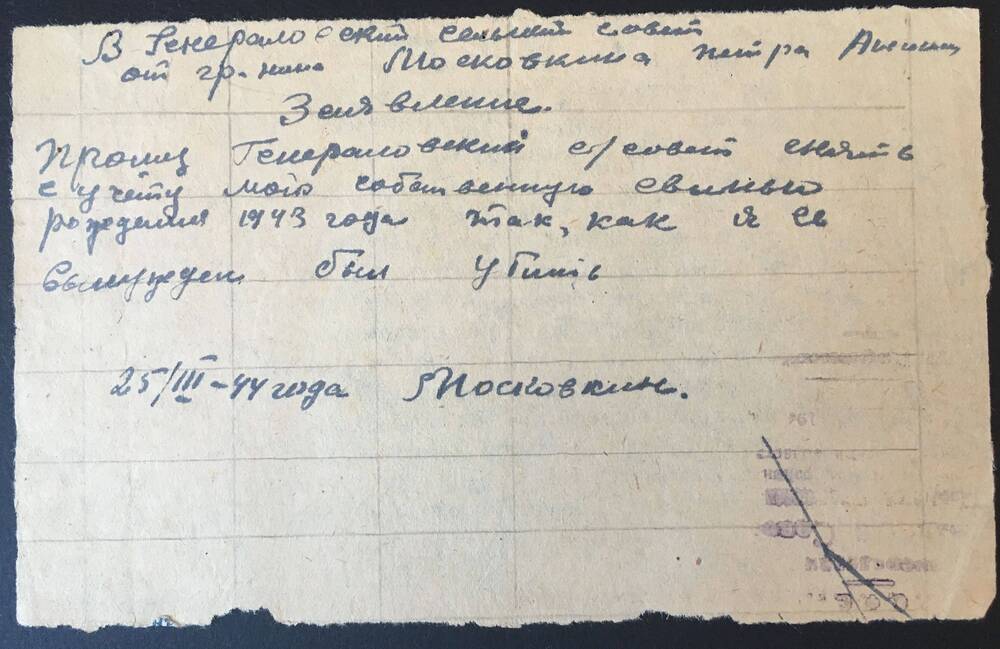 В Генераловский сельский совет
от гр-нина Московкина Петра
Заявление.
Прошу Генераловский с/совет снять
с учёту мою собственную свинью
рождения 1943 года так, как я её
вынужден был убить
25/III-44 года Московкин.